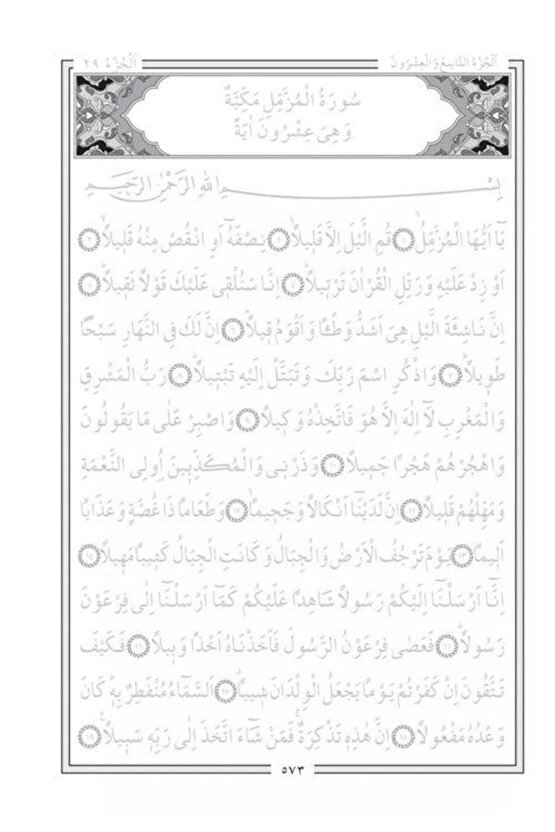 اَلْجُزْءُ التَّاسِعُ وَالْعِشْرُونَ
اَلْجُزْءُ ٢٩
سُورَةُ الْمُزَّمِّلِ مَكِّيَّةٌ
وَهِىَ عِشْرُونَ اٰيَةً
بِسْمِ اللّٰهِ الرَّحْمٰنِ الرَّحِيمِ
يَٓا اَيُّهَا الْمُزَّمِّلُۙ ١ قُمِ الَّيْلَ اِلَّا قَلِيلًاۙ ٢ نِصْفَهُٓ اَوِ انْقُصْ مِنْهُ قَلِيلًاۙ ٣
اَوْ زِدْ عَلَيْهِ وَرَتِّلِ الْقُرْاٰنَ تَرْتِيلًاۜ ٤ اِنَّا سَنُلْقِى عَلَيْكَ قَوْلًا ثَقِيلًا ٥
اِنَّ نَاشِئَةَ الَّيْلِ هِىَ اَشَدُّ وَطْـًٔا وَاَقْوَمُ قِيلًاۜ ٦ اِنَّ لَكَ فِى النَّهَارِ سَبْحًا
طَوِيلًاۜ ٧ وَاذْكُرِ اسْمَ رَبِّكَ وَتَبَتَّلْ اِلَيْهِ تَبْتِيلًاۜ ٨ رَبُّ الْمَشْرِقِ
وَالْمَغْرِبِ لَٓا اِلٰهَ اِلَّا هُوَ فَاتَّخِذْهُ وَكِيلًا ٩ وَاصْبِرْ عَلٰى مَا يَقُولُونَ
وَاهْجُرْهُمْ هَجْرًا جَمِيلًا ١٠ وَذَرْنِى وَالْمُكَذِّبِينَ اُولِى النَّعْمَةِ
وَمَهِّلْهُمْ قَلِيلًا ١١ اِنَّ لَدَيْنَٓا اَنْكَالًا وَجَحِيمًاۙ ١٢ وَطَعَامًا ذَا غُصَّةٍ وَعَذَابًا
اَلِيمًا ١٣ يَوْمَ تَرْجُفُ الْاَرْضُ وَالْجِبَالُ وَكَانَتِ الْجِبَالُ كَثِيبًا مَهِيلًا ١٤
اِنَّٓا اَرْسَلْنَٓا اِلَيْكُمْ رَسُولًا شَاهِدًا عَلَيْكُمْ كَمَٓا اَرْسَلْنَٓا اِلٰى فِرْعَوْنَ
رَسُولًاۜ ١٥ فَعَصٰى فِرْعَوْنُ الرَّسُولَ فَاَخَذْنَاهُ اَخْذًا وَبِيلًا ١٦ فَكَيْفَ
تَتَّقُونَ اِنْ كَفَرْتُمْ يَوْمًا يَجْعَلُ الْوِلْدَانَ شِيبًاۗ ١٧ اَلسَّمَٓاءُ مُنْفَطِرٌ بِهِۜ كَانَ
وَعْدُهُ مَفْعُولًا ١٨ اِنَّ هٰذِهِ تَذْكِرَةٌۚ فَمَنْ شَٓاءَ اتَّخَذَ اِلٰى رَبِّهِ سَبِيلًا ١٩
٥٧٣